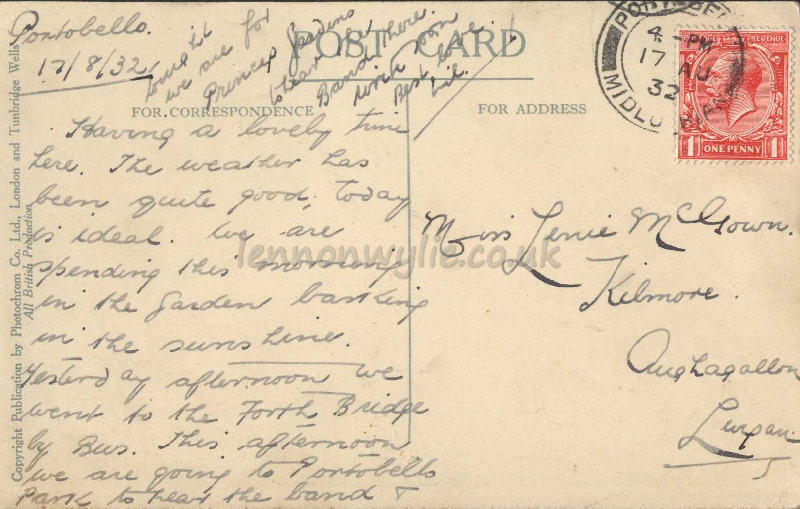 Portobello.
17/8/32
POST CARD
FOR CORRESPONDENCE
FOR ADDRESS
Having a lovely time
here. The weather has
been quite good, today
is ideal. We are
spending this morning
in the garden basking
in the sunshine.
Yesterday afternoon we
went to the Forth Bridge
by Bus. This afternoon
we are going to Portobello
Park to hear the band &
tonight
we are for
Princes Gardens
to hear the
Band there.
Write soon
Best love
Lil.
Miss Lenie McGown.
Kilmore.
Aughagallon
Lurgan.
PORTOBELLO
4 - PM
17 AU
32
MIDLOTHIAN
POSTAGE REVENUE
1 ONE PENNY 1
Copyright Publication by Photochrom Co. Ltd., London and Tunbridge Wells.
All British Production
lennonwylie.co.uk